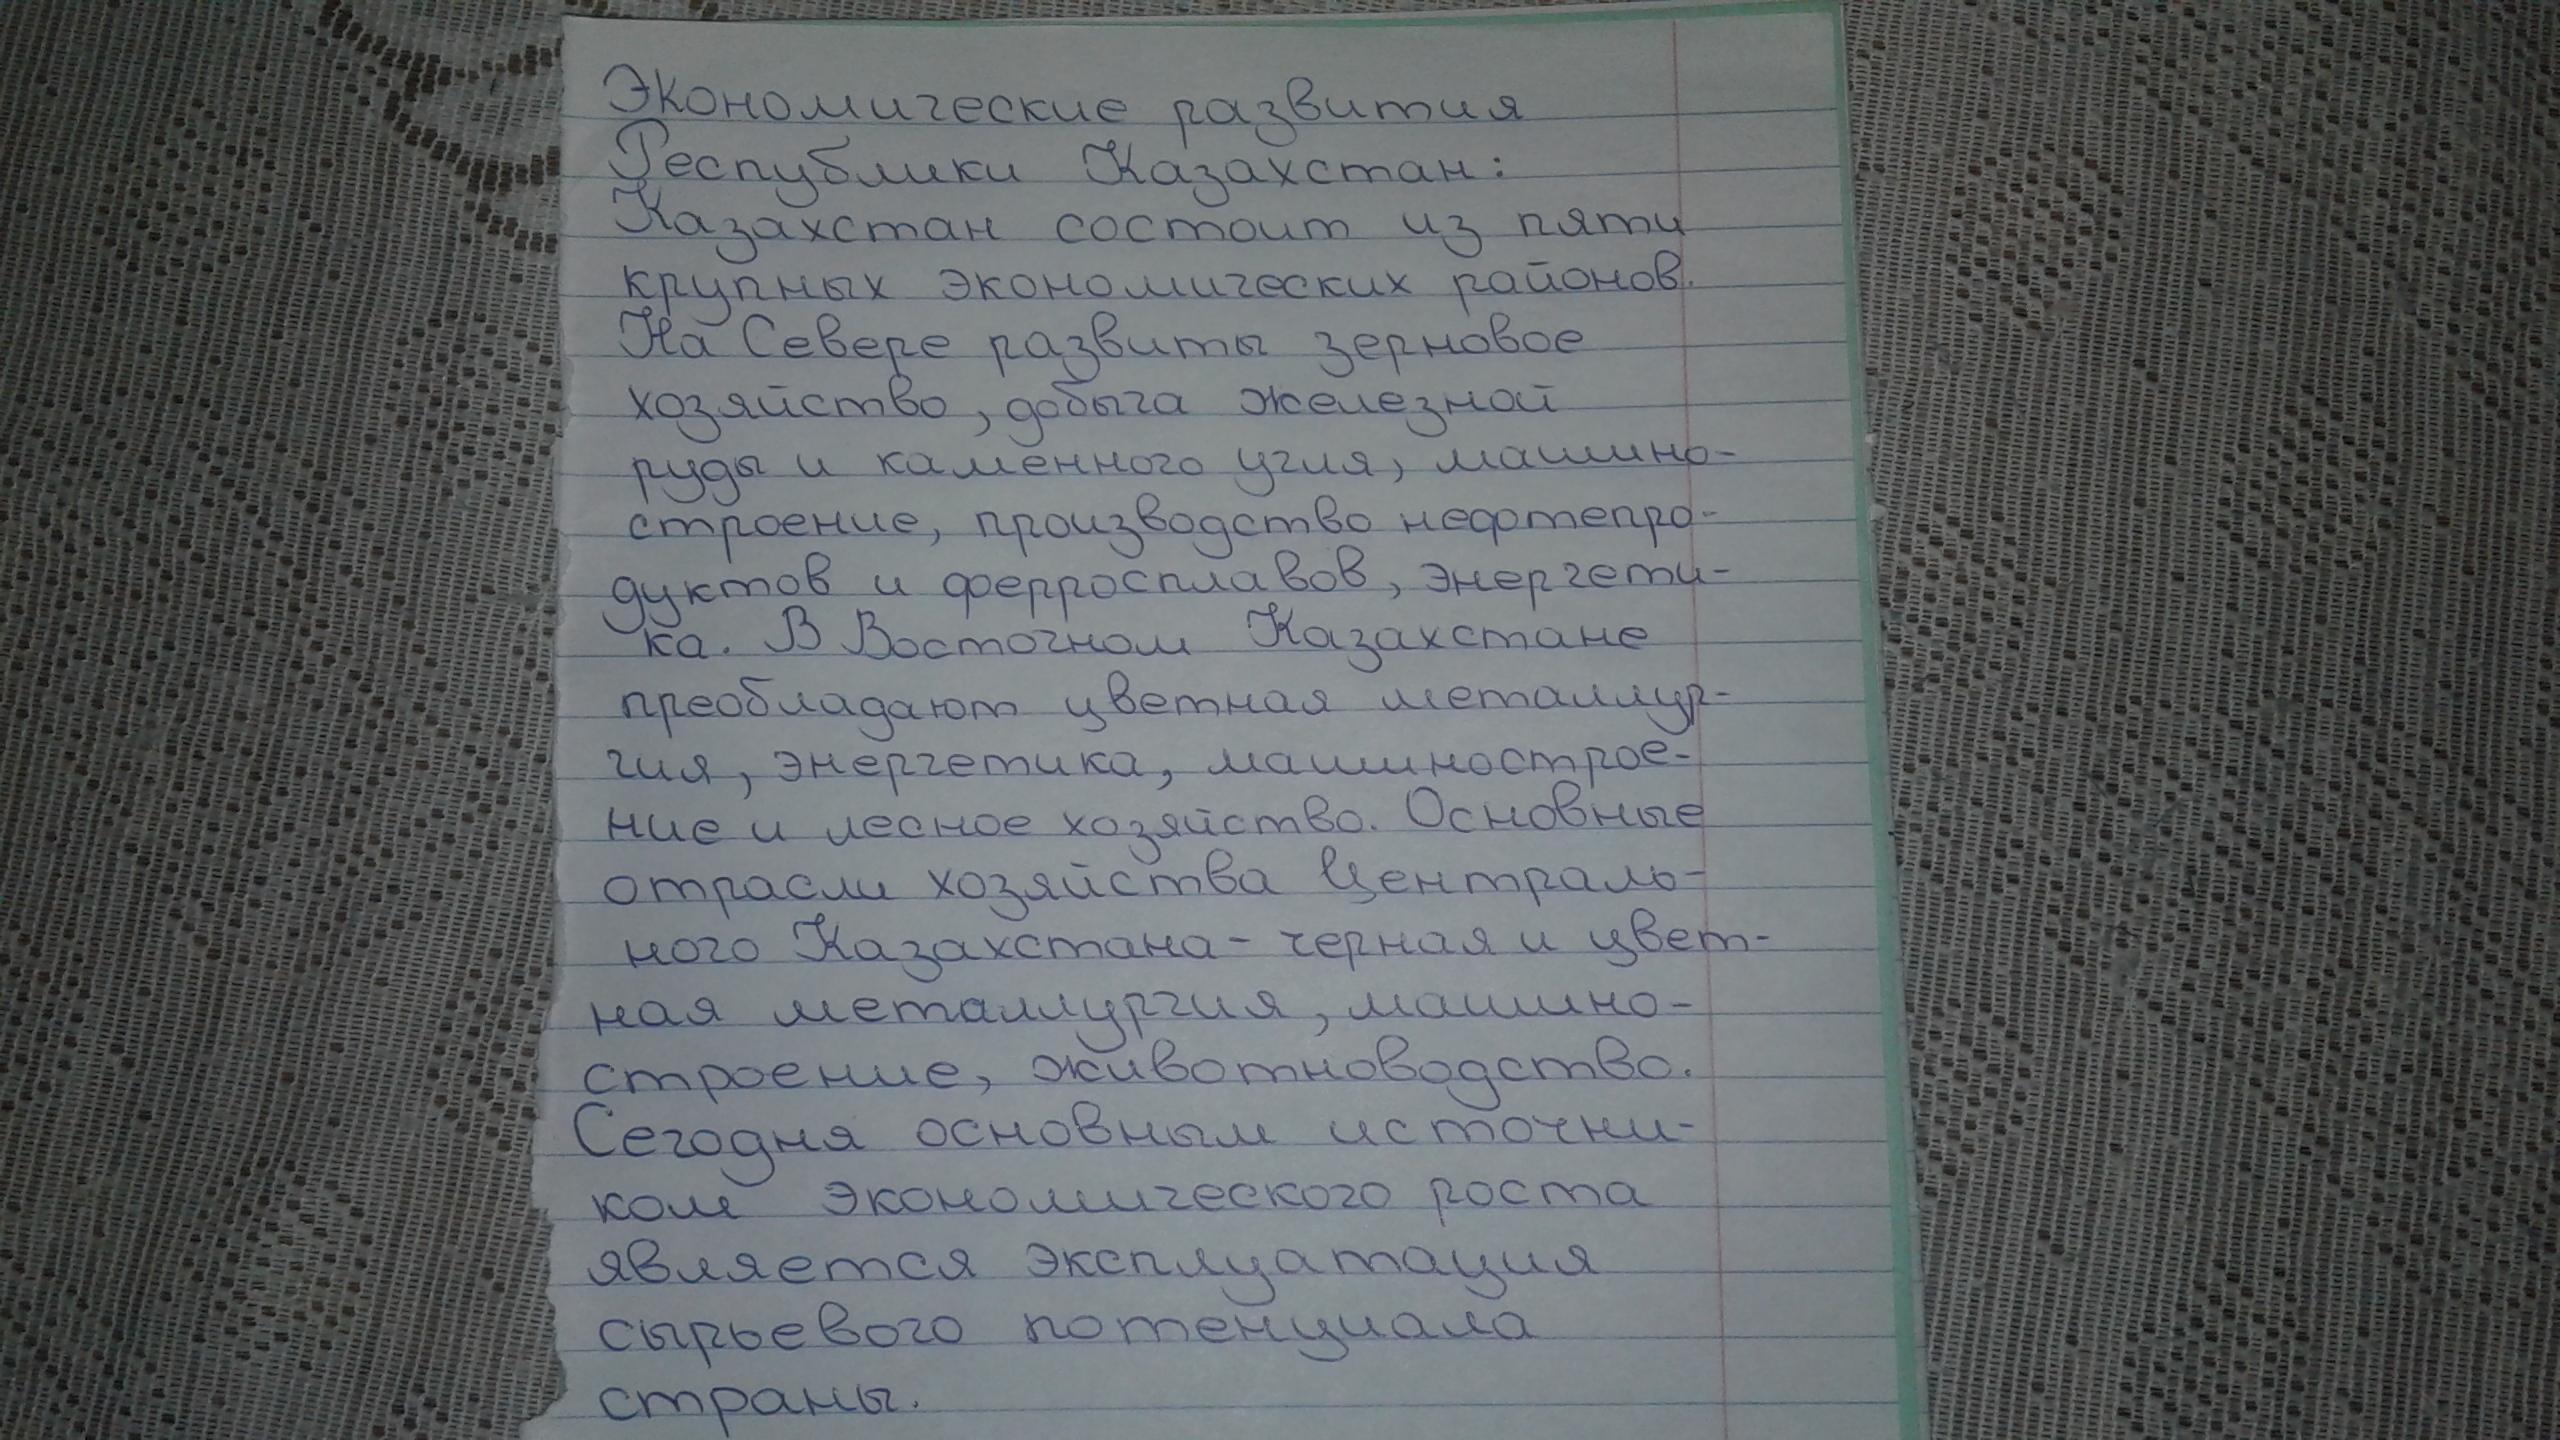 Экономические развития
Республики Казахстан:
Казахстан состоит из пяти
крупных экономических районов.
На Севере развиты зерновое
хозяйство, добыча железной
руды и каменного угля, машино-
строение, производство нефтепро-
дуктов и ферросплавов, энергети-
ка. В Восточном Казахстане
преобладают цветная металлур-
гия, энергетика, машинострое-
ние и лесное хозяйство. Основные
отрасли хозяйства Централь-
ного Казахстана - черная и цвет-
ная металлургия, машино-
строение, животноводство.
Сегодня основным источни-
ком экономического роста
является эксплуатация
сырьевого потенциала
страны.